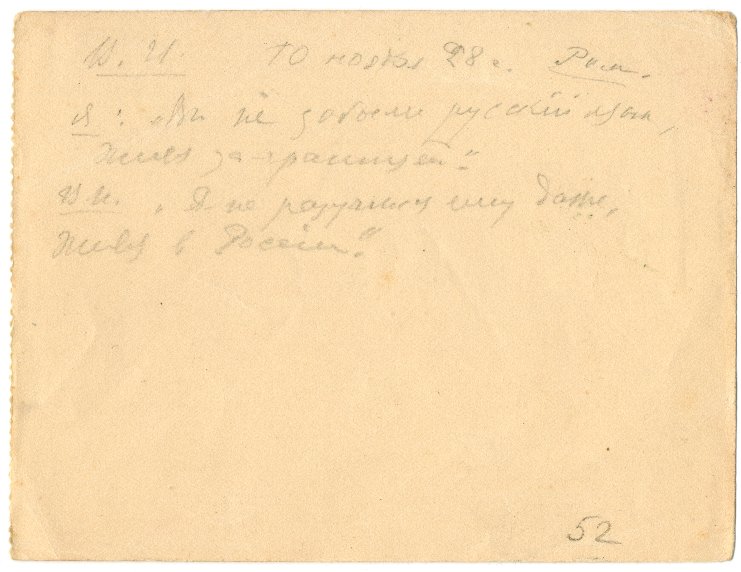 В. И. 10 ноября 28 г. Рим.
Я: „Вы не забыли русский язык,
живя за границей“.
В. И. „Я не разучился ему даже,
живя в России“.
52